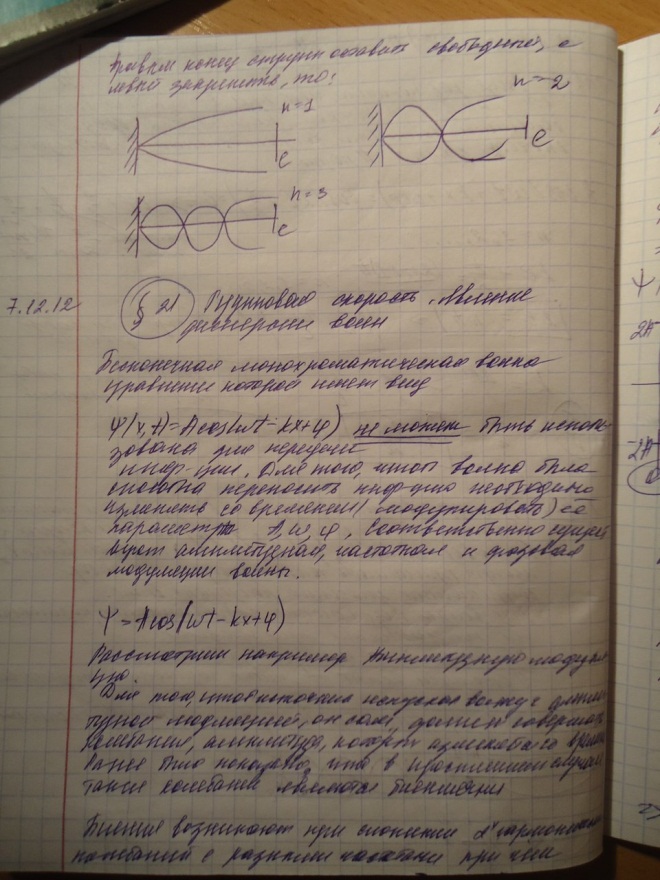 правый конец струны оставить свободным, а
левый закрепить, то:
n=1
n=2
l
l
n=3
l
7.12.12
§ 21 Групповая скорость. Явление
дисперсии волн
Бесконечная монохроматическая волна
уравнение которой имеет вид
Ψ(x,t)=Acos(ωt-kx+φ) не может быть исполь-
зована для передачи
инф-ции. Для того, чтобы волна была
способна переносить инф-цию необходимо
изменять со временем (модулировать) её
параметры A, ω, φ, соответственно сущест
вуют амплитудная, частотная и фазовая
модуляции волны.
Ψ=Acos(ωt-kx+φ)
Рассмотрим например амплитудную модуля
цию.
Для того, чтоб источник испускал волну с ампли
тудной модуляцией, он сам должен совершать
колебания, амплитуда, которых изменяется со врем
Ранее было показано, что в простейшем случае
такие колебания являются биениями
Биения возникают при сложении 2х гармонических
колебаний с разными частотами при чём